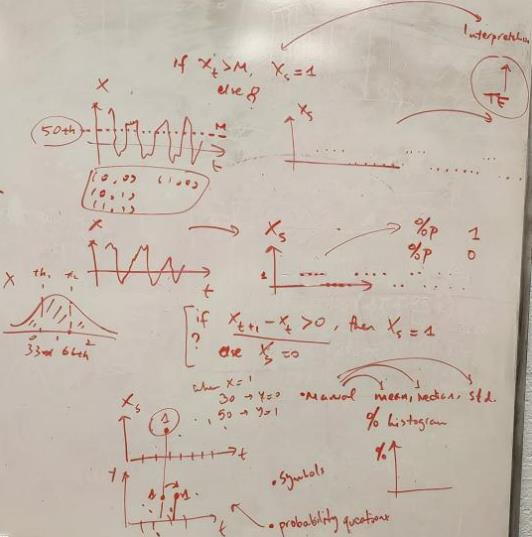 Interpretation
if Xt > M, Xs = 1
else 0
TE
X
Xs
50th
M
t
(0,0) (1,0)
(0,1)
(1,1)
X
Xs
%p 1
%p 0
1
t
X
th1
0
2
33rd 66th
if Xt+1 - Xt > 0, then Xs = 1
? else Xs = 0
when X = 1
30 → Y=0
50 → Y=1
• Manual mean, median, std.
% histogram
Xs
1
t
%
Y
1 1
t
• Symbols
• probability questions